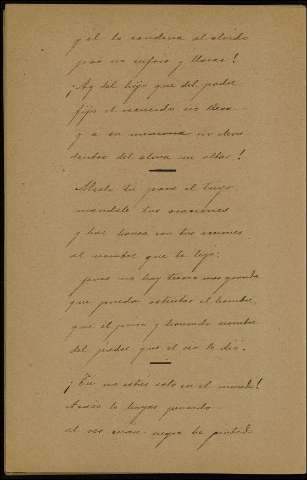 y él lo condena al olvido
para no sufrir y llorar!
¡Ay del hijo que del padre
fijo el recuerdo no lleva
y a su memoria no eleva
dentro del alma un altar!
Álzale tú para el tuyo
mándale tus oraciones
y haz honra con tus acciones
al nombre que te legó:
pues no hay honra más grande
que pueda ostentar el hombre,
que el puro y honrado nombre
del padre que el ser le dio.
¡Tú no estés solo en el mundo!
Acaso lo hayas pensado
al ver